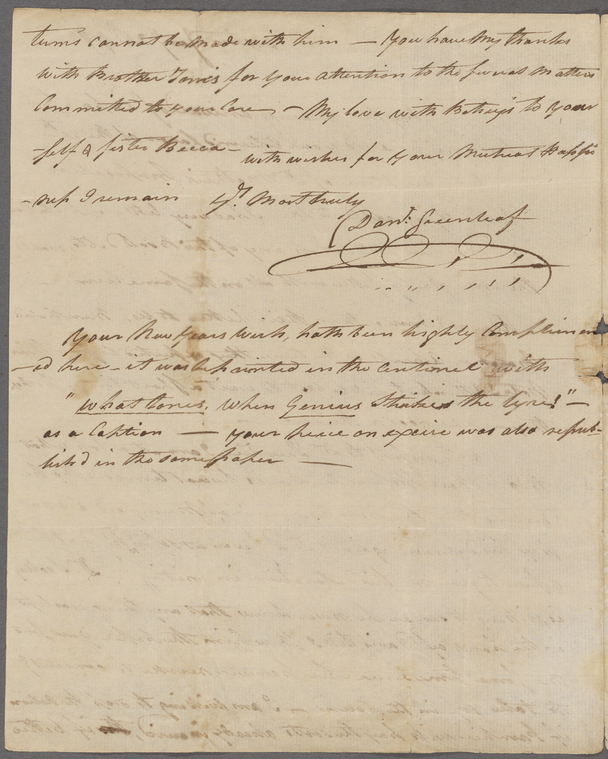 terms cannot be made with him — You have my thanks
with Brother Tom's for your attention to the several matters
Committed to your Care — My love with Betsey's to your
-self & sister Becca — with wishes for your Mutual Happi
-ness I remain Yrs. Most truly
Danl. Greenleaf
Your New Years Wish, hath been highly Complimen
-ed here — it was reprinted in the Centinel with
"What tones, When Genius Strikes the lyre!" —
as a Caption — your piece on excise was also repub-
lish'd in the same paper —